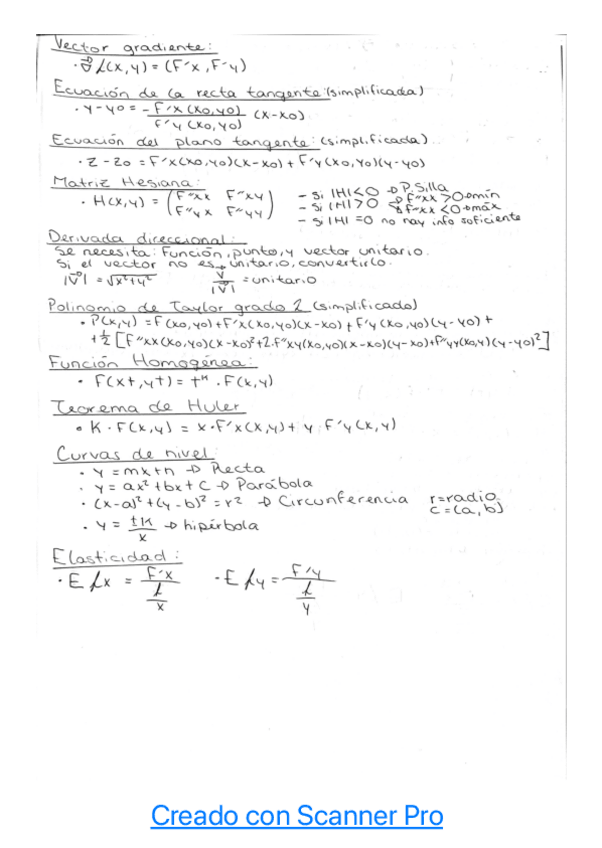 Vector gradiente:
· ∇f(x,y) = (F'x, F'y)
Ecuación de la recta tangente: (simplificada)
· y-y0 = -F'x(x0,y0) / F'y(x0,y0) (x-x0)
Ecuación del plano tangente: (simplificada)
· z-z0 = F'x(x0,y0)(x-x0) + F'y(x0,y0)(y-y0)
Matriz Hesiana:
· H(x,y) = (F''xx F''xy
F''yx F''yy)
- Si |H|<0 → P. Silla
- Si |H|>0 → F''xx>0 → mín
→ F''xx<0 → máx
- Si |H|=0 no hay info suficiente
Derivada direccional:
Se necesita: Función, punto, y vector unitario.
Si el vector no es unitario, convertirlo.
|v| = √x²+y² v/|v| = unitario
Polinomio de Taylor grado 2 (simplificado)
· P(x,y) = F(x0,y0) + F'x(x0,y0)(x-x0) + F'y(x0,y0)(y-y0) +
+ 1/2 [F''xx(x0,y0)(x-x0)²+2·F''xy(x0,y0)(x-x0)(y-y0)+F''yy(x0,y)(y-y0)²]
Función Homogénea:
· F(xt,yt) = tᵏ · F(x,y)
Teorema de Huler
· K·F(x,y) = x·F'x(x,y) + y·F'y(x,y)
Curvas de nivel:
· y = mx+n → Recta
· y = ax²+bx+c → Parábola
· (x-a)²+(y-b)² = r² → Circunferencia r=radio
c=(a,b)
· y = ±K/x → hipérbola
Elasticidad:
· Efx = F'x / (f/x) · Efy = F'y / (f/y)
Creado con Scanner Pro